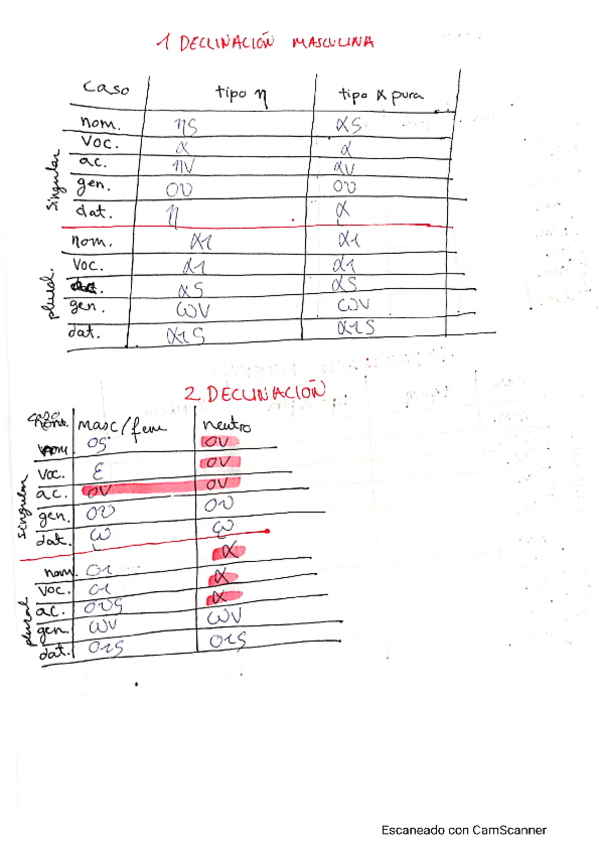 1 DECLINACIÓN MASCULINA
caso tipo η tipo α pura
singular
nom. ης ας
voc. α α
ac. ην αν
gen. ου ου
dat. ῃ ᾳ
plural.
nom. αι αι
voc. αι αι
ας ας
gen. ων ων
dat. αις αις
2 DECLINACIÓN
caso masc/fem neutro
singular
nom. ος ον
voc. ε ον
ac. ον ον
gen. ου ου
dat. ῳ ῳ
plural
nom. οι α
voc. οι α
ac. ους α
gen. ων ων
dat. οις οις
Escaneado con CamScanner